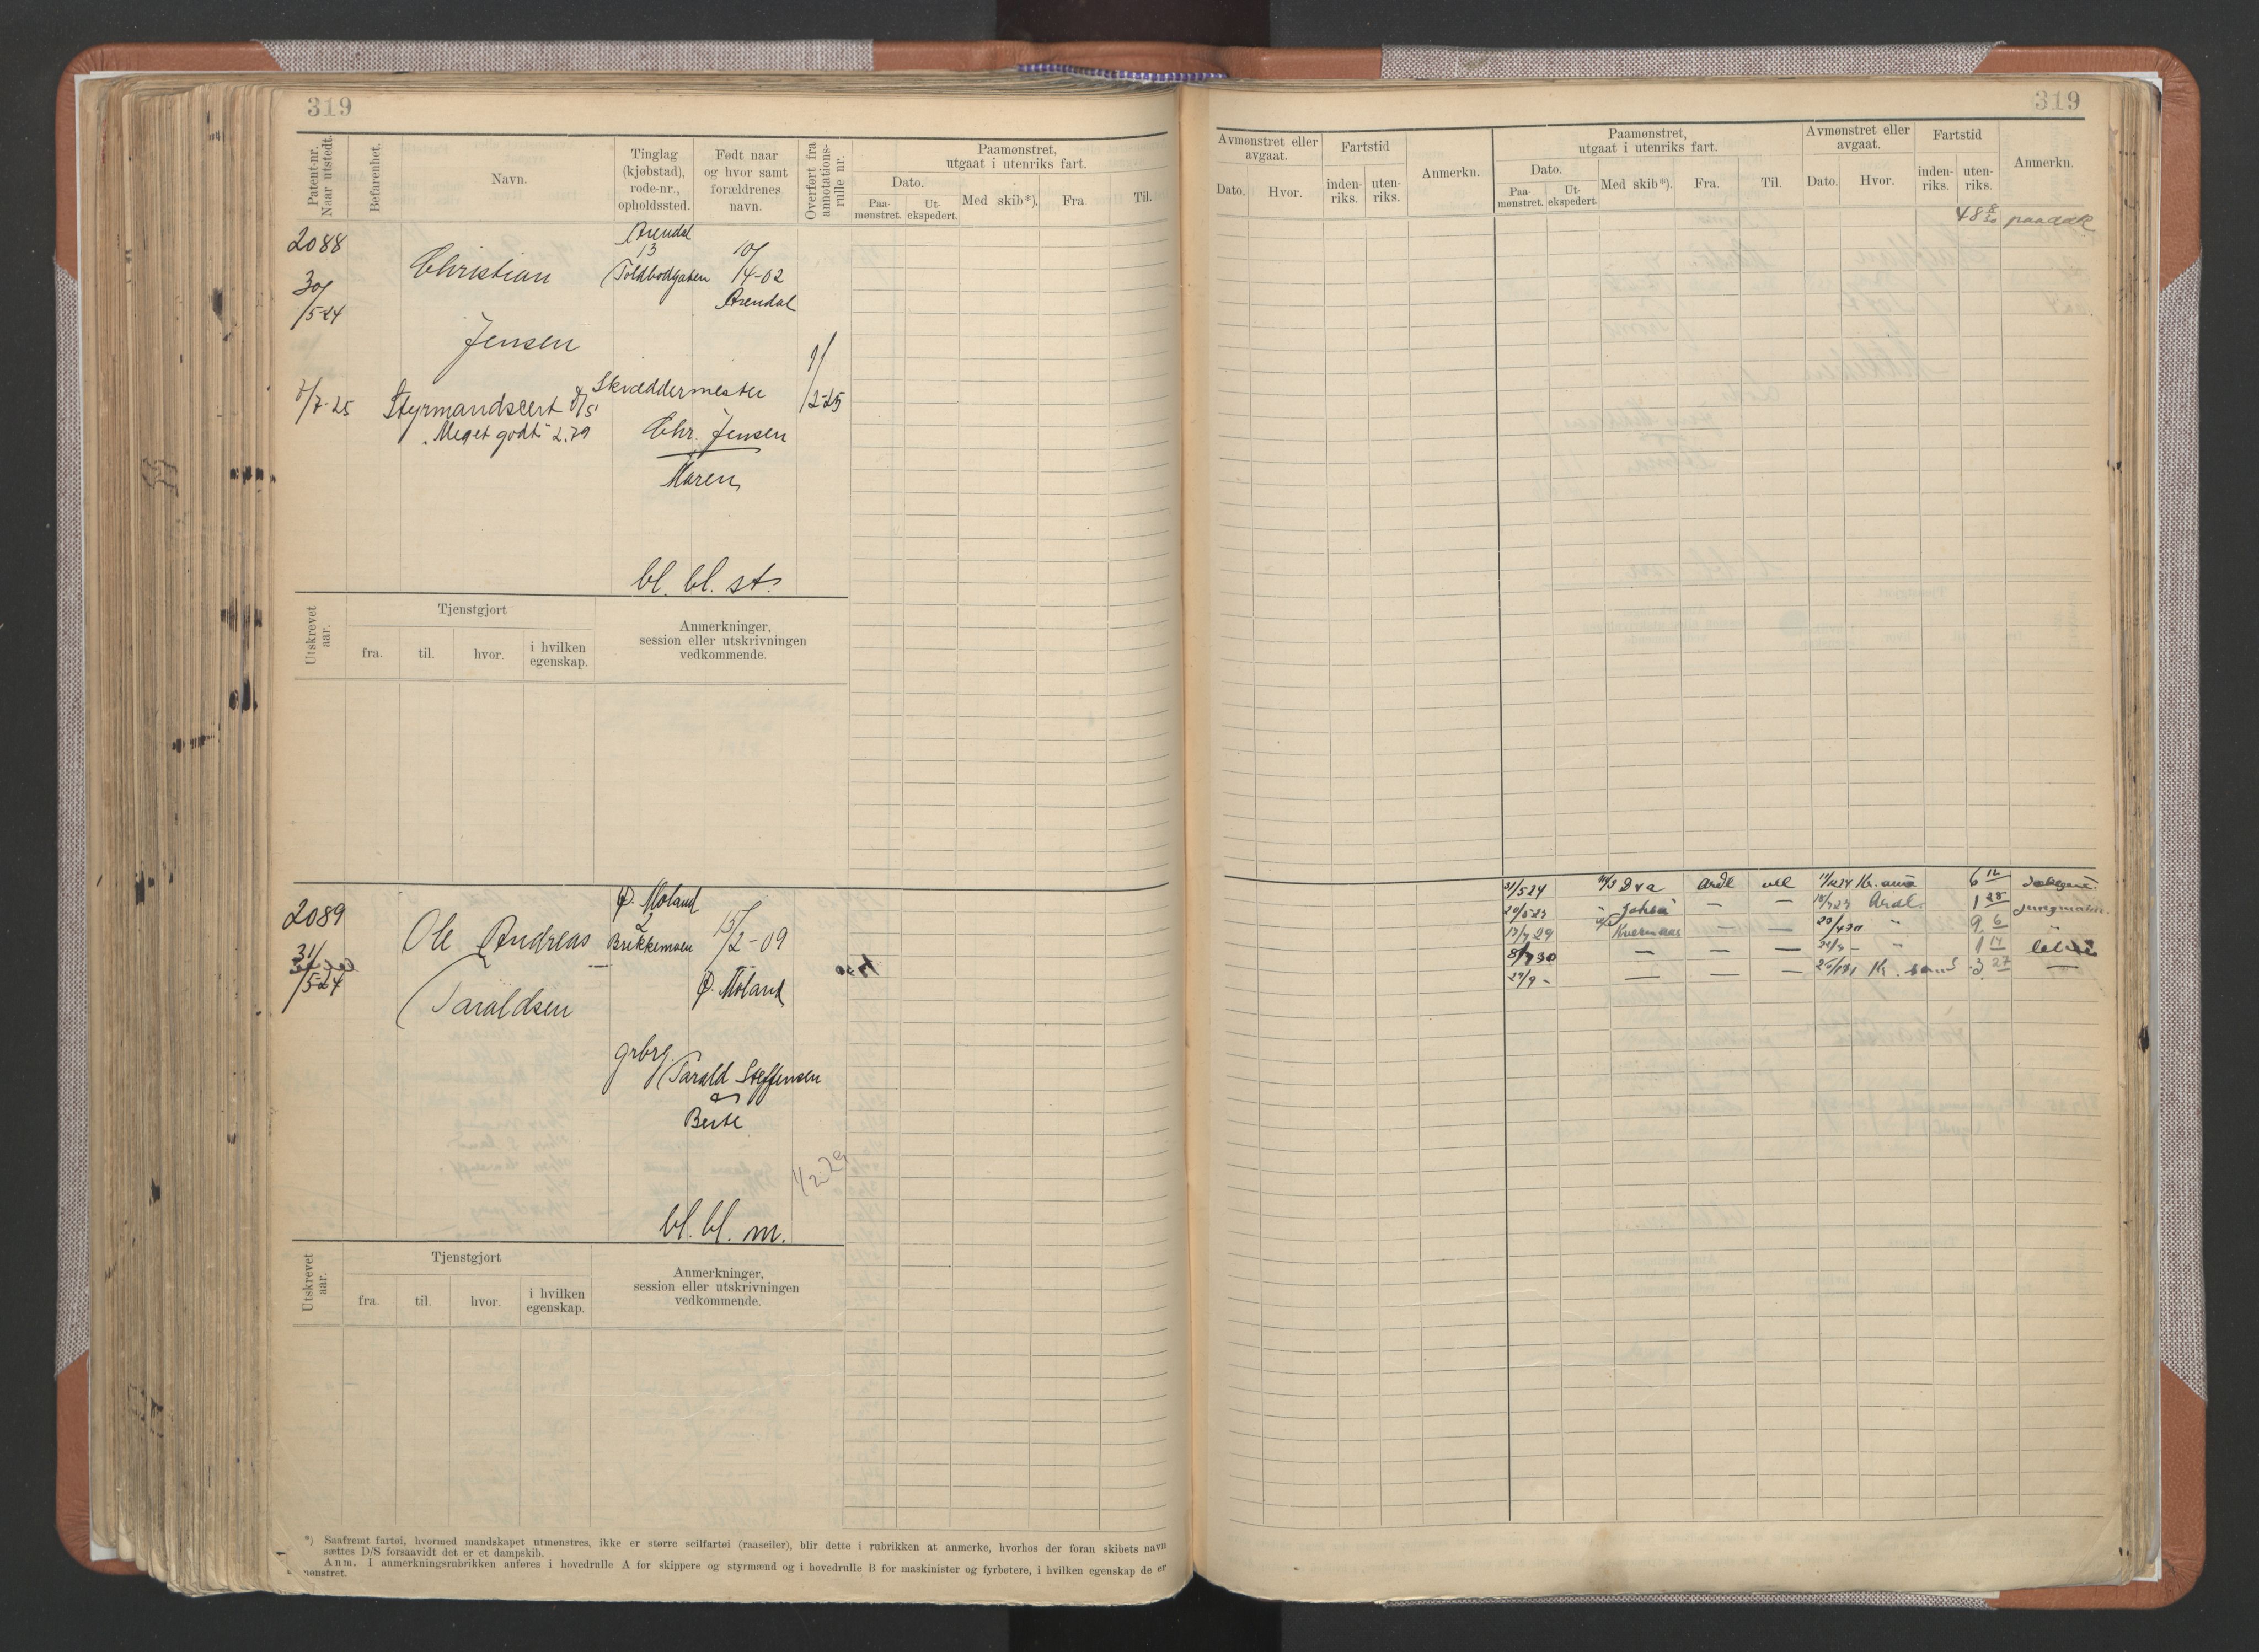 319
Patent-nr. Naar utstedt.
Befarenhet.
Navn.
Tinglag (kjøbstad), rode-nr., opholdssted.
Født naar og hvor samt forældrenes navn.
Overført fra annotations-rulle nr.
Paamønstret, utgaat i utenriks fart.
Dato.
Paa-mønstret.
Ut-ekspedert.
Med skib*).
Fra
Til.
2088
30/5-24
Christian
Jensen
Arendal
13
Toldbodgaten
10/4-02
Arendal
7/7-25
Styrmandscert
"Meget godt" 2.79
Skræddermester
Chr. Jensen
Maren
1/2-25
bl. bl. st.
Utskrevet aar.
Tjenstgjort
fra.
til.
hvor.
i hvilken egenskap.
Anmerkninger, session eller utskrivningen vedkommende.
2089
31/5-24
Ole Andreas
Taraldsen
Ø. Moland
2
Brekkemoen
15/2-09
Ø. Moland
grbrg.
Tarald Steffensen
Berte
1/2 29
bl. bl. m.
Utskrevet aar.
Tjenstgjort
fra.
til.
hvor.
i hvilken egenskap.
Anmerkninger, session eller utskrivningen vedkommende.
*) Saafremt fartøi, hvormed mandskapet utmønstres, ikke er større seilfartøi (raaseiler), blir dette i rubrikken at anmerke, hvorhos der foran skibets navn
sættes D/S forsaavidt det er et dampskib.
Anm. I anmerkningsrubrikken anføres i hovedrulle A for skippere og styrmænd og i hovedrulle B for maskinister og fyrbøtere, i hvilken egenskap de er
mønstret.
319
Avmønstret eller avgaat.
Dato.
Hvor.
Fartstid
inden-riks.
uten-riks.
Anmerkn.
Paamønstret, utgaat i utenriks fart.
Dato.
Paa-mønstret.
Ut-ekspedert.
Med skib*).
Fra.
Til.
Avmønstret eller avgaat.
Dato.
Hvor.
Fartstid
inden-riks.
uten-riks.
Anmerkn.
48 8/30 paa dæk
31/5 24 Ardl 6 12
— — Ardl. 1 28 jungmann
17/7 29 Kvernaas — — 9 6
8/7 30 — — — 1 17
27/9 - — — — Kr. sand 3 27 —